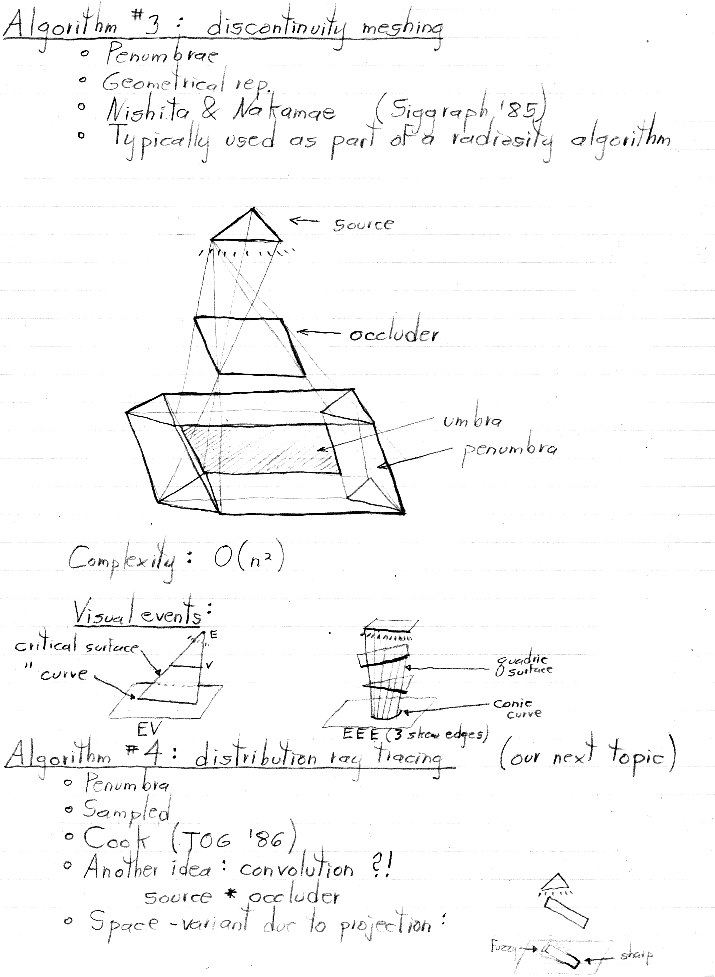 Algorithm #3 : discontinuity meshing
° Penumbrae
° Geometrical rep.
° Nishita & Nakamae (Siggraph '85)
° Typically used as part of a radiosity algorithm
source
occluder
umbra
penumbra
Complexity : O(n²)
Visual events :
critical surface
" curve
E
V
EV
quadric surface
conic curve
EEE (3 skew edges)
Algorithm #4 : distribution ray tracing (our next topic)
° Penumbra
° Sampled
° Cook (TOG '86)
° Another idea : convolution ?!
source * occluder
° Space-variant due to projection :
Fuzzy
sharp